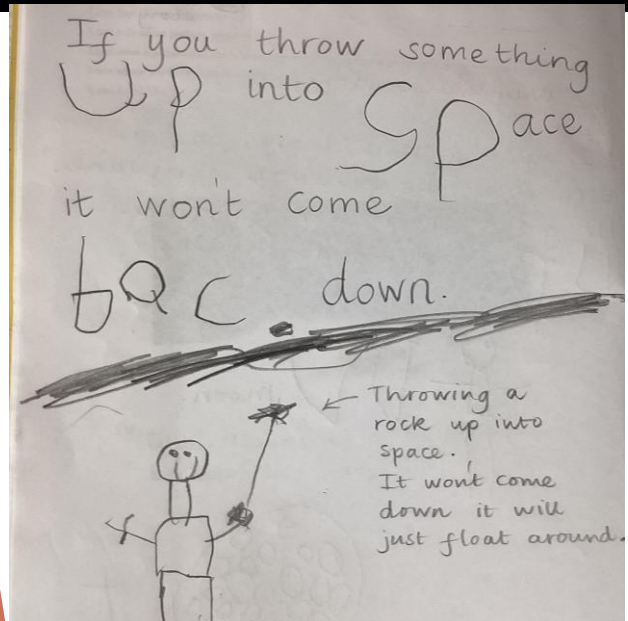 If you throw something
up into Space
it won't come
bac down.
Throwing a
rock up into
space.
It won't come
down it will
just float around.